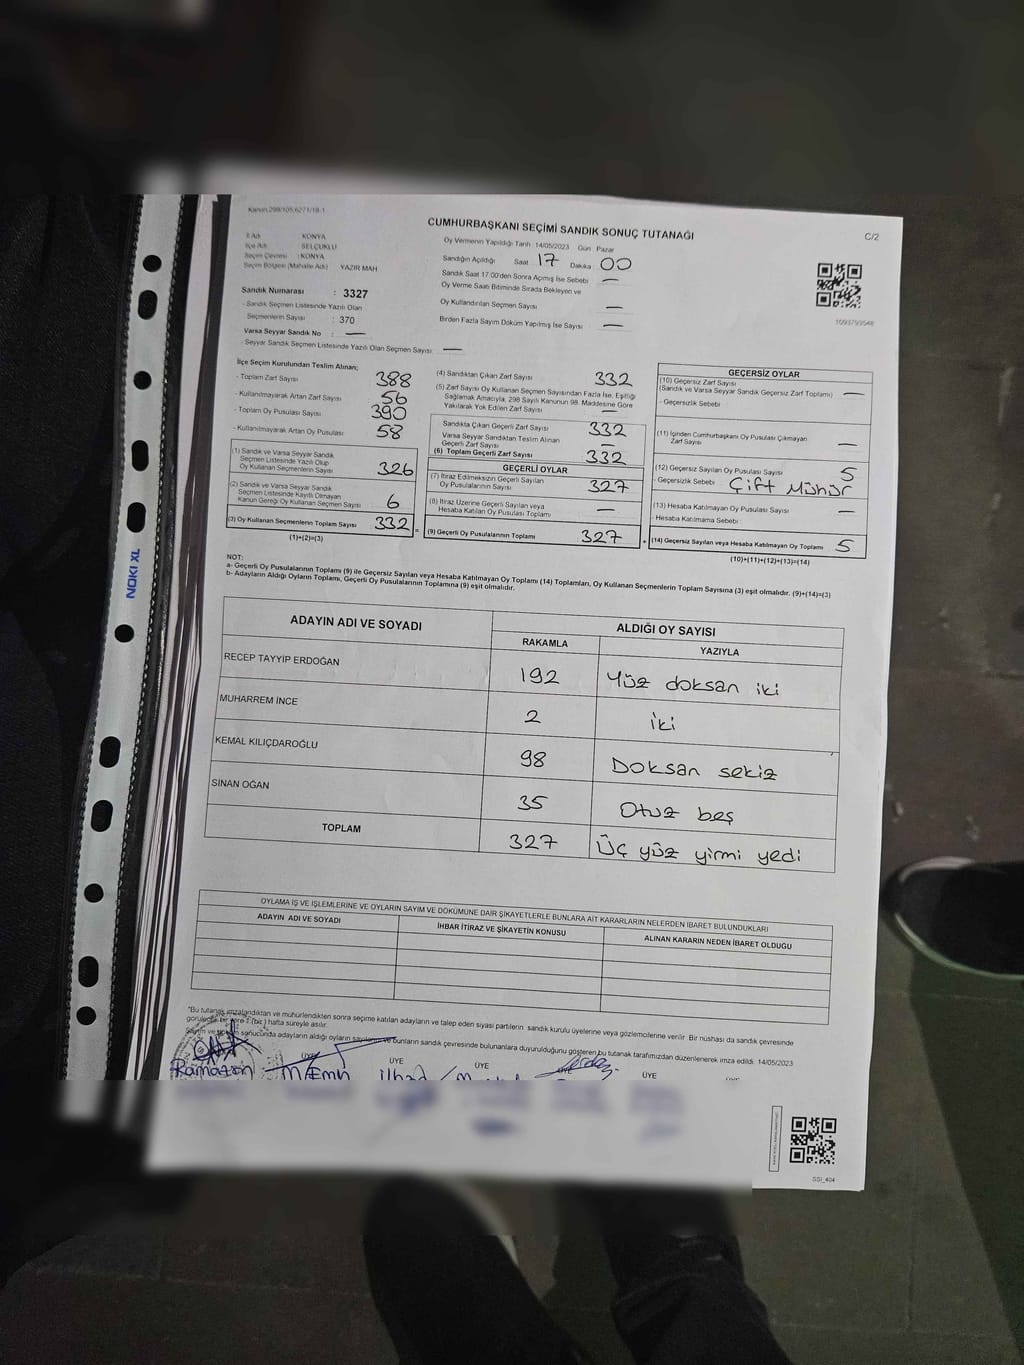 Kanun 298/105,6271/18-1
CUMHURBAŞKANI SEÇİMİ SANDIK SONUÇ TUTANAĞI
C/2
İl Adı KONYA
İlçe Adı SELÇUKLU
Seçim Çevresi : KONYA
Seçim Bölgesi (Mahalle Adı) YAZIR MAH
Sandık Numarası : 3327
- Sandık Seçmen Listesinde Yazılı Olan
Seçmenlerin Sayısı : 370
Varsa Seyyar Sandık No : —
- Seyyar Sandık Seçmen Listesinde Yazılı Olan Seçmen Sayısı —
Oy Vermenin Yapıldığı Tarih : 14/05/2023 Gün : Pazar
Sandığın Açıldığı Saat 17 Dakika 00
Sandık Saat 17:00'den Sonra Açılmış İse Sebebi —
Oy Verme Saati Bitiminde Sırada Bekleyen ve
Oy Kullandırılan Seçmen Sayısı —
Birden Fazla Sayım Döküm Yapılmış İse Sayısı —
1093793548
İlçe Seçim Kurulundan Teslim Alınan;
- Toplam Zarf Sayısı 388
- Kullanılmayarak Artan Zarf Sayısı 56
- Toplam Oy Pusulası Sayısı 390
- Kullanılmayarak Artan Oy Pusulası 58
(1) Sandık ve Varsa Seyyar Sandık
Seçmen Listesinde Yazılı Olup
Oy Kullanan Seçmenlerin Sayısı 326
(2) Sandık ve Varsa Seyyar Sandık
Seçmen Listesinde Kayıtlı Olmayan
Kanun Gereği Oy Kullanan Seçmen Sayısı 6
(3) Oy Kullanan Seçmenlerin Toplam Sayısı 332 =
(1)+(2)=(3)
(4) Sandıktan Çıkan Zarf Sayısı 332
(5) Zarf Sayısı Oy Kullanan Seçmen Sayısından Fazla İse, Eşitliği
Sağlamak Amacıyla, 298 Sayılı Kanunun 98. Maddesine Göre
Yakılarak Yok Edilen Zarf Sayısı —
Sandıkta Çıkan Geçerli Zarf Sayısı 332
Varsa Seyyar Sandıktan Teslim Alınan
Geçerli Zarf Sayısı —
(6) Toplam Geçerli Zarf Sayısı 332
GEÇERLİ OYLAR
(7) İtiraz Edilmeksizin Geçerli Sayılan
Oy Pusulalarının Sayısı 327
(8) İtiraz Üzerine Geçerli Sayılan veya
Hesaba Katılan Oy Pusulası Toplamı —
(9) Geçerli Oy Pusulalarının Toplamı 327 +
GEÇERSİZ OYLAR
(10) Geçersiz Zarf Sayısı
(Sandık ve Varsa Seyyar Sandık Geçersiz Zarf Toplamı) —
- Geçersizlik Sebebi
(11) İçinden Cumhurbaşkanı Oy Pusulası Çıkmayan
Zarf Sayısı —
(12) Geçersiz Sayılan Oy Pusulası Sayısı 5
- Geçersizlik Sebebi Çift Mühür
(13) Hesaba Katılmayan Oy Pusulası Sayısı —
- Hesaba Katılmama Sebebi
(14) Geçersiz Sayılan veya Hesaba Katılmayan Oy Toplamı 5
(10)+(11)+(12)+(13)=(14)
NOT:
a- Geçerli Oy Pusulalarının Toplamı (9) ile Geçersiz Sayılan veya Hesaba Katılmayan Oy Toplamı (14) Toplamları, Oy Kullanan Seçmenlerin Toplam Sayısına (3) eşit olmalıdır. (9)+(14)=(3)
b- Adayların Aldığı Oyların Toplamı, Geçerli Oy Pusulalarının Toplamına (9) eşit olmalıdır.
ADAYIN ADI VE SOYADI ALDIĞI OY SAYISI
RAKAMLA YAZIYLA
RECEP TAYYİP ERDOĞAN 192 Yüz doksan iki
MUHARREM İNCE 2 iki
KEMAL KILIÇDAROĞLU 98 Doksan sekiz
SİNAN OĞAN 35 Otuz beş
TOPLAM 327 Üç yüz yirmi yedi
OYLAMA İŞ VE İŞLEMLERİNE VE OYLARIN SAYIM VE DÖKÜMÜNE DAİR ŞİKAYETLERLE BUNLARA AİT KARARLARIN NELERDEN İBARET BULUNDUKLARI
ADAYIN ADI VE SOYADI İHBAR İTİRAZ VE ŞİKAYETİN KONUSU ALINAN KARARIN NEDEN İBARET OLDUĞU
"Bu tutanak imzalandıktan ve mühürlendikten sonra seçime katılan adayların ve talep eden siyasi partilerin sandık kurulu üyelerine veya gözlemcilerine verilir. Bir nüshası da sandık çevresinde
görülecek bir yere 1 (bir) hafta süreyle asılır.
Sayım ve döküm sonucunda adayların aldığı oyların sayılarını ve bunların sandık çevresinde bulunanlara duyurulduğunu gösteren bu tutanak tarafımızdan düzenlenerek imza edildi. 14/05/2023
ÜYE ÜYE ÜYE ÜYE
Ramazan M.Emin ilhad
NOKI XL
SSİ_404